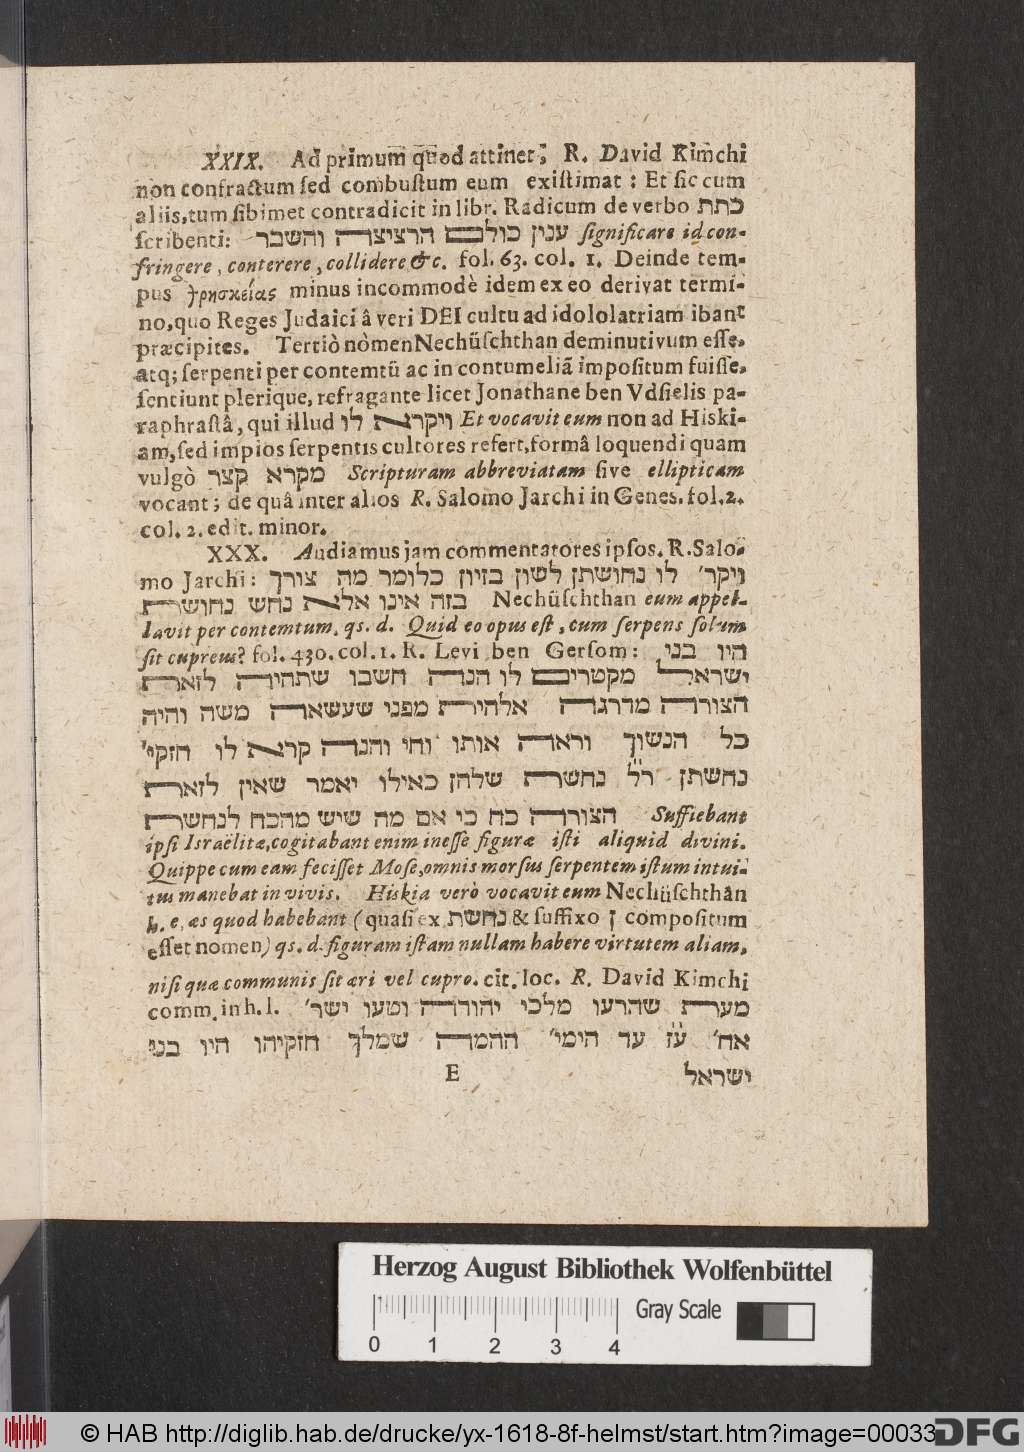 XXIX. Ad primum quod attinet; R. David Kimchi
non confractum sed combustum eum existimat: Et sic cum
aliis, tum sibimet contradicit in libr. Radicum de verbo כתת
scribenti: ענין כולם הרציצה והשבר significare id con-
fringere, conterere, collidere &c. fol. 63. col. 1. Deinde tem-
pus θρησκείας minus incommodè idem ex eo derivat termi-
no, quo Reges Judaici â veri DEI cultu ad idololatriam ibant
præcipites. Tertiò nòmen Nechüschthan deminutivum esse,
atq; serpenti per contemtū ac in contumeliã impositum fuisse,
sentiunt plerique, refragante licet Jonathane ben Vdsielis pa-
raphrastâ, qui illud ויקרא לו Et vocavit eum non ad Hiski-
am, sed impios serpentis cultores refert, formâ loquendi quam
vulgò מקרא קצר Scripturam abbreviatam sive ellipticam
vocant; de quâ inter alios R. Salomo Jarchi in Genes. fol. 2.
col. 2. edit. minor.
XXX. Audiamus jam commentatores ipsos. R. Salo-
mo Jarchi: ויקר׳ לו נחושתן לשון בזיון כלומר מה צורך
בזה אינו אלא נחש נחושת Nechüschthan eum appel-
lavit per contemtum, qs. d. Quid eo opus est, cum serpens solum
sit cupreus? fol. 430. col. 1. R. Levi ben Gersom: היו בני
ישראל מקטרים לו הנה חשבו שתהיה לזאת
הצורה מדרגה אלהית מפני שעשאה משה והיה
כל הנשוך וראה אותו וחי והנה קרא לו חזקי׳
נחשתן ר״ל נחשת שלהן כאילו יאמר שאין לזאת
הצורה כח כי אם מה שיש מהכח לנחשת Suffiebant
ipsi Israëlitæ, cogitabant enim inesse figuræ isti aliquid divini.
Quippe cum eam fecisset Mose, omnis morsus serpentem istum intui-
tus manebat in vivis. Hiskia verò vocavit eum Nechüschthan
h. e. æs quod habebant (quasi ex נחשת & suffixo ן compositum
esset nomen) qs. d. figuram istam nullam habere virtutem aliam,
nisi quæ communis sit æri vel cupro. cit. loc. R. David Kimchi
comm. in h. l. מעת שהרעו מלכי יהודה וטעו ישר׳
אח׳ ע״ז עד הימי׳ ההמה שמלך חזקיהו היו בני
E ישראל
Herzog August Bibliothek Wolfenbüttel
Gray Scale
0 1 2 3 4
© HAB http://diglib.hab.de/drucke/yx-1618-8f-helmst/start.htm?image=00033
DFG